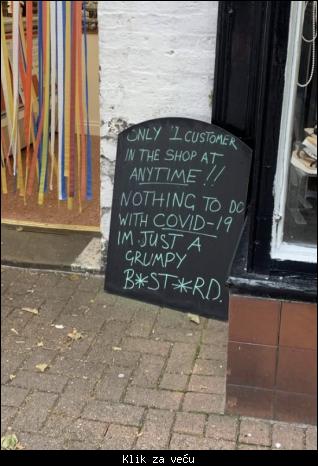 ONLY 1 CUSTOMER
IN THE SHOP AT
ANYTIME!!
NOTHING TO DO
WITH COVID-19
IM JUST A
GRUMPY
B*ST*RD.
Klik za veču